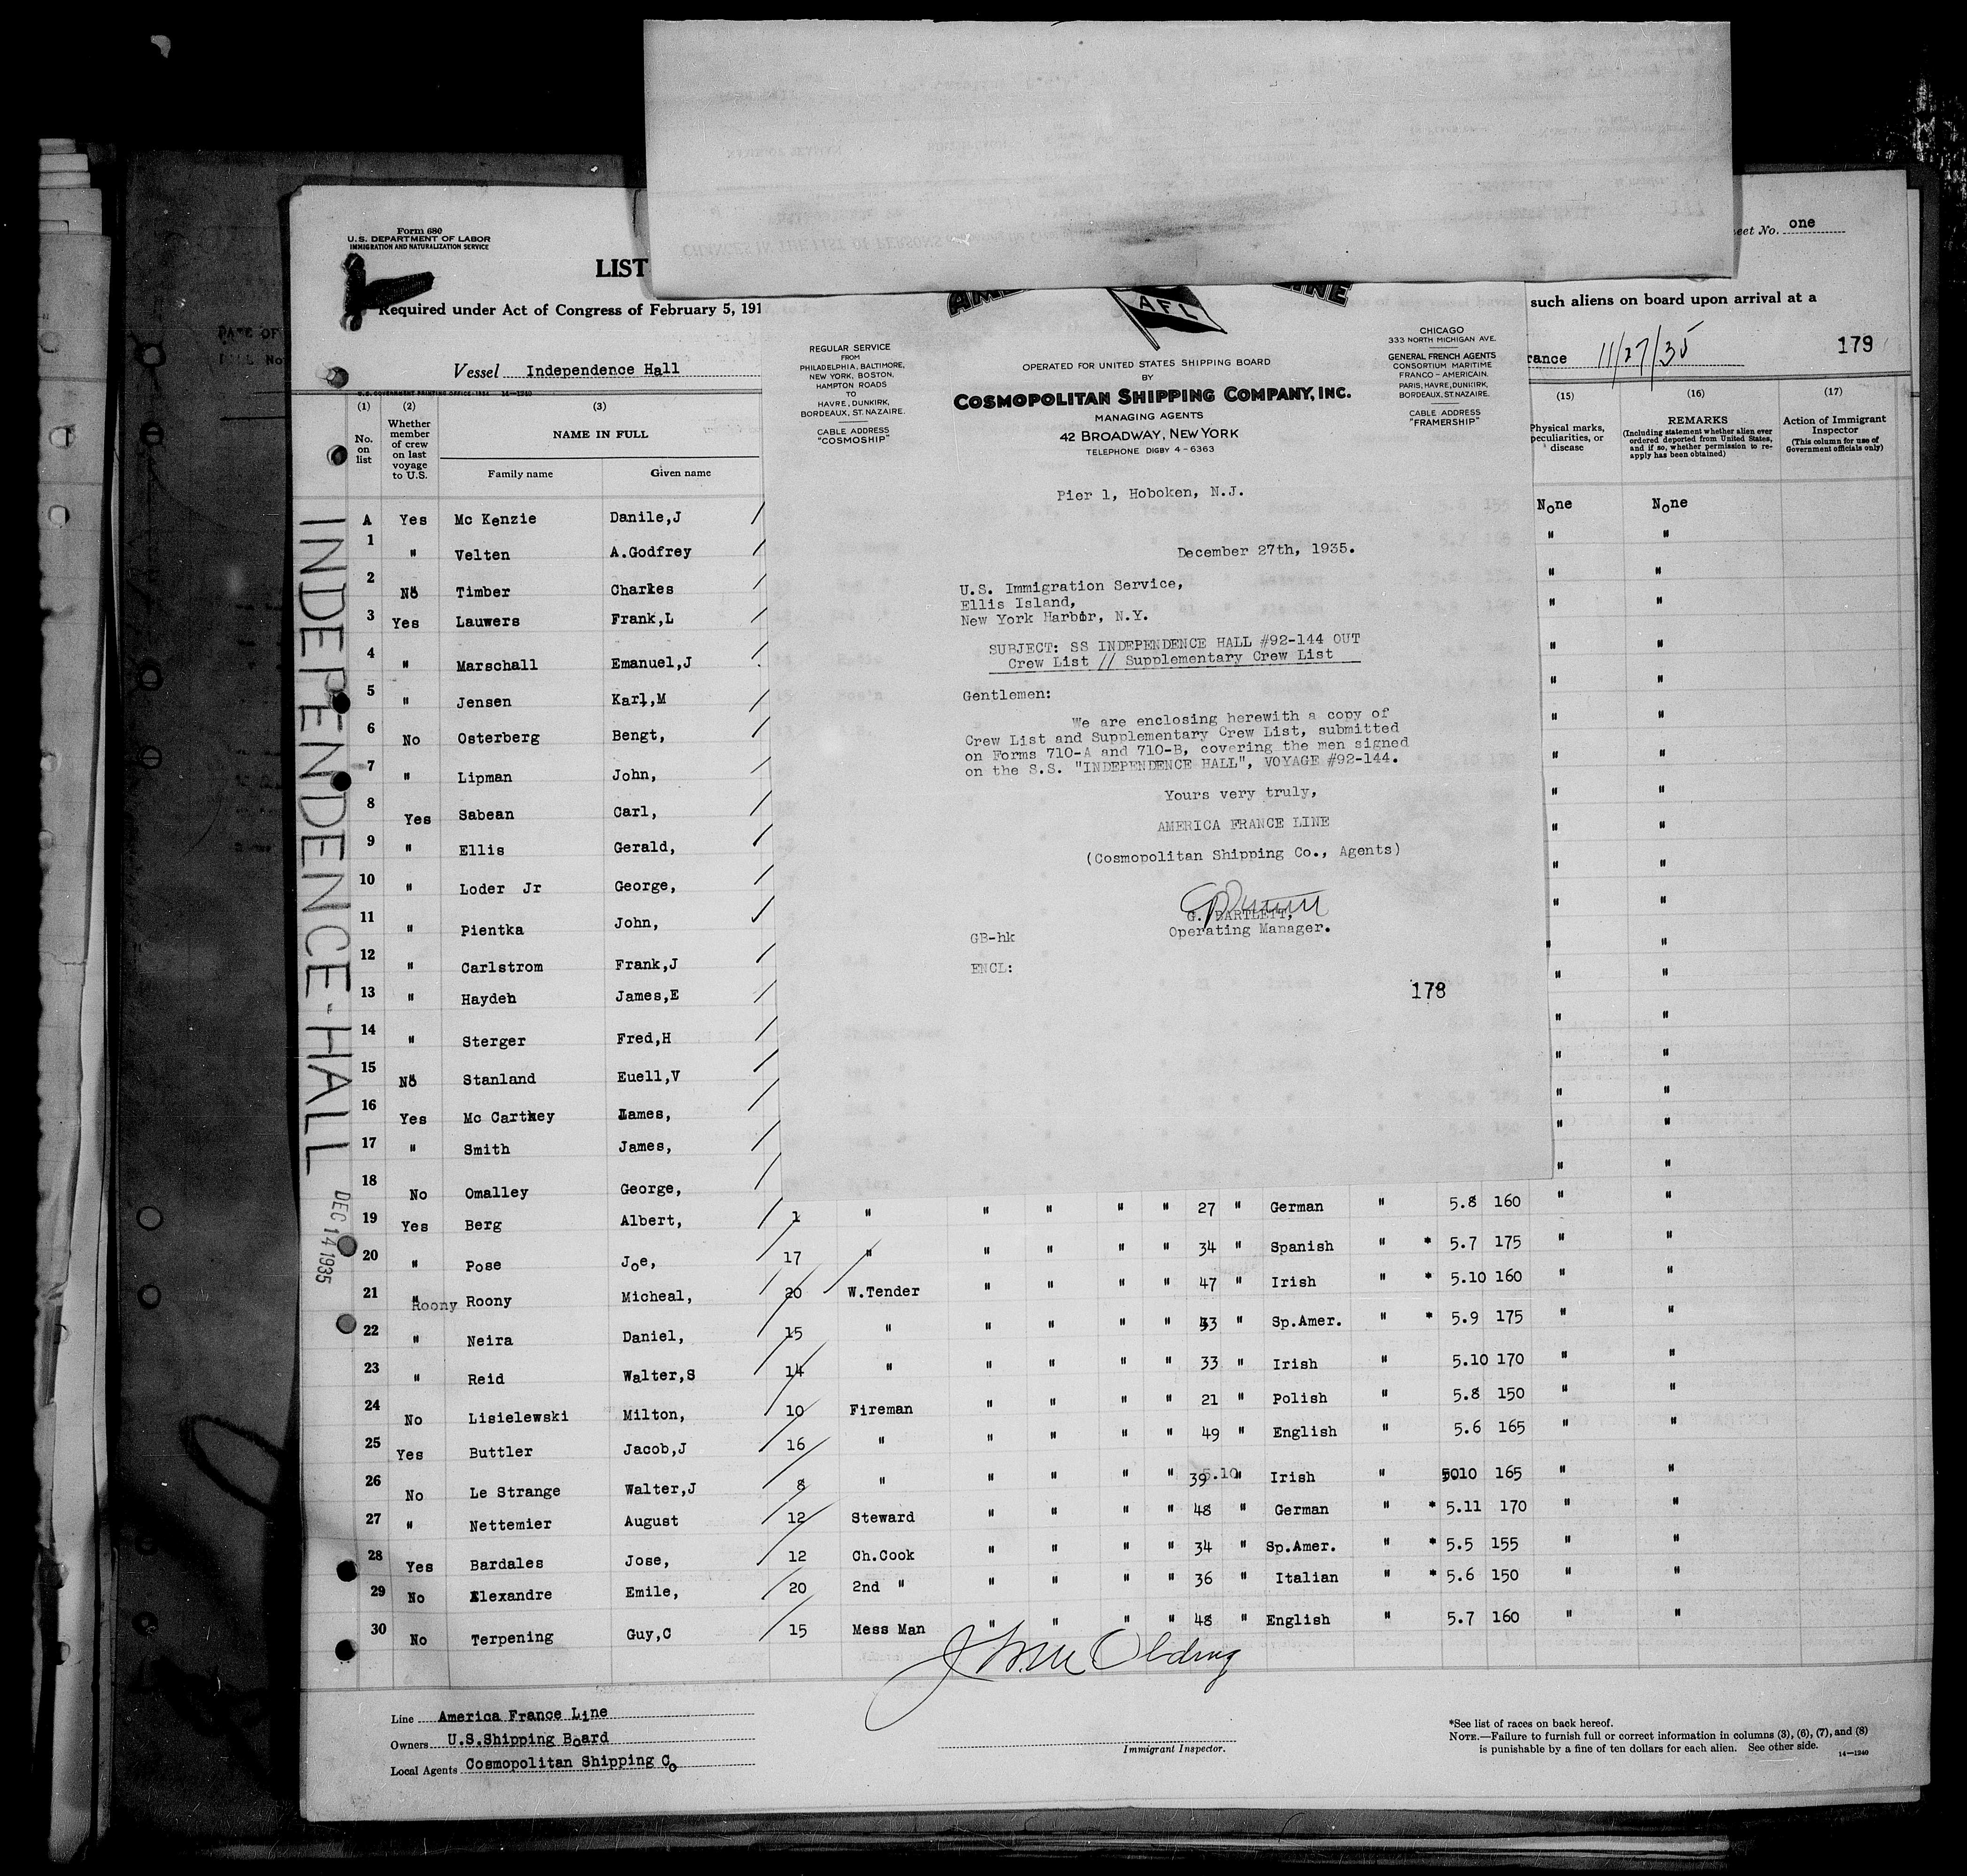 Form 680
U.S. DEPARTMENT OF LABOR
IMMIGRATION AND NATURALIZATION SERVICE
LIST
Required under Act of Congress of February 5, 191
such aliens on board upon arrival at a
eet No. one
Vessel Independence Hall
rance 11/27/35
179
U.S. GOVERNMENT PRINTING OFFICE: 1934 14—1240
(1) (2) (3) (15) (16) (17)
No. on list
Whether member of crew on last voyage to U.S.
NAME IN FULL
Family name Given name
Physical marks, peculiarities, or disease
REMARKS
(Including statement whether alien ever ordered deported from United States, and if so, whether permission to reapply has been obtained)
Action of Immigrant Inspector
(This column for use of Government officials only)
INDEPENDENCE-HALL
DEC 14 1935
A Yes Mc Kenzie Danile,J None None
1 " Velten A.Godfrey " "
2 No Timber Charles " "
3 Yes Lauwers Frank,L " "
4 " Marschall Emanuel,J " "
5 " Jensen Karl,M " "
6 No Osterberg Bengt, " "
7 " Lipman John, " "
8 Yes Sabean Carl, " "
9 " Ellis Gerald, " "
10 " Loder Jr George, " "
11 " Pientka John, " "
12 " Carlstrom Frank,J " "
13 " Haydeh James,E " "
14 " Sterger Fred,H " "
15 No Stanland Euell,V " "
16 Yes Mc Cartney James, " "
17 " Smith James, " "
18 No Omalley George, " "
19 Yes Berg Albert, 1 " " " " " 27 " German " 5.8 160 " "
20 " Pose Joe, 17 " " " " " 34 " Spanish " * 5.7 175 " "
21 " Roony Roony Micheal, 20 W.Tender " " " " 47 " Irish " * 5.10 160 " "
22 " Neira Daniel, 15 " " " " " 43 " Sp.Amer. " * 5.9 175 " "
23 " Reid Walter,S 14 " " " " " 33 " Irish " 5.10 170 " "
24 No Lisielewski Milton, 10 Fireman " " " " 21 " Polish " 5.8 150 " "
25 Yes Buttler Jacob,J 16 " " " " " 49 " English " 5.6 165 " "
26 No Le Strange Walter,J 8 " " " " " 39 5.10 " Irish " 5010 165 " "
27 " Nettemier August 12 Steward " " " " 48 " German " * 5.11 170 " "
28 Yes Bardales Jose, 12 Ch.Cook " " " " 34 " Sp.Amer. " * 5.5 155 " "
29 No Alexandre Emile, 20 2nd " " " " " 36 " Italian " * 5.6 150 " "
30 No Terpening Guy,C 15 Mess Man " " " " 48 " English " 5.7 160 " "
Line America France Line
Owners U.S.Shipping Board
Local Agents Cosmopolitan Shipping Co
Immigrant Inspector.
*See list of races on back hereof.
NOTE.—Failure to furnish full or correct information in columns (3), (6), (7), and (8)
is punishable by a fine of ten dollars for each alien. See other side.
14—1240
AFL
REGULAR SERVICE
FROM
PHILADELPHIA, BALTIMORE,
NEW YORK, BOSTON,
HAMPTON ROADS
TO
HAVRE, DUNKIRK,
BORDEAUX, ST. NAZAIRE.
CABLE ADDRESS
"COSMOSHIP"
OPERATED FOR UNITED STATES SHIPPING BOARD
BY
COSMOPOLITAN SHIPPING COMPANY, INC.
MANAGING AGENTS
42 BROADWAY, NEW YORK
TELEPHONE DIGBY 4-6363
CHICAGO
333 NORTH MICHIGAN AVE.
GENERAL FRENCH AGENTS
CONSORTIUM MARITIME
FRANCO-AMERICAIN.
PARIS, HAVRE, DUNKIRK,
BORDEAUX, ST. NAZAIRE.
CABLE ADDRESS
"FRAMERSHIP"
Pier 1, Hoboken, N.J.
December 27th, 1935.
U.S. Immigration Service,
Ellis Island,
New York Harbor, N.Y.
SUBJECT: SS INDEPENDENCE HALL #92-144 OUT
Crew List // Supplementary Crew List
Gentlemen:
We are enclosing herewith a copy of
Crew List and Supplementary Crew List, submitted
on Forms 710-A and 710-B, covering the men signed
on the S.S. "INDEPENDENCE HALL", VOYAGE #92-144.
Yours very truly,
AMERICA FRANCE LINE
(Cosmopolitan Shipping Co., Agents)
G. BARTLETT,
Operating Manager.
GB-hk
ENCL:
178